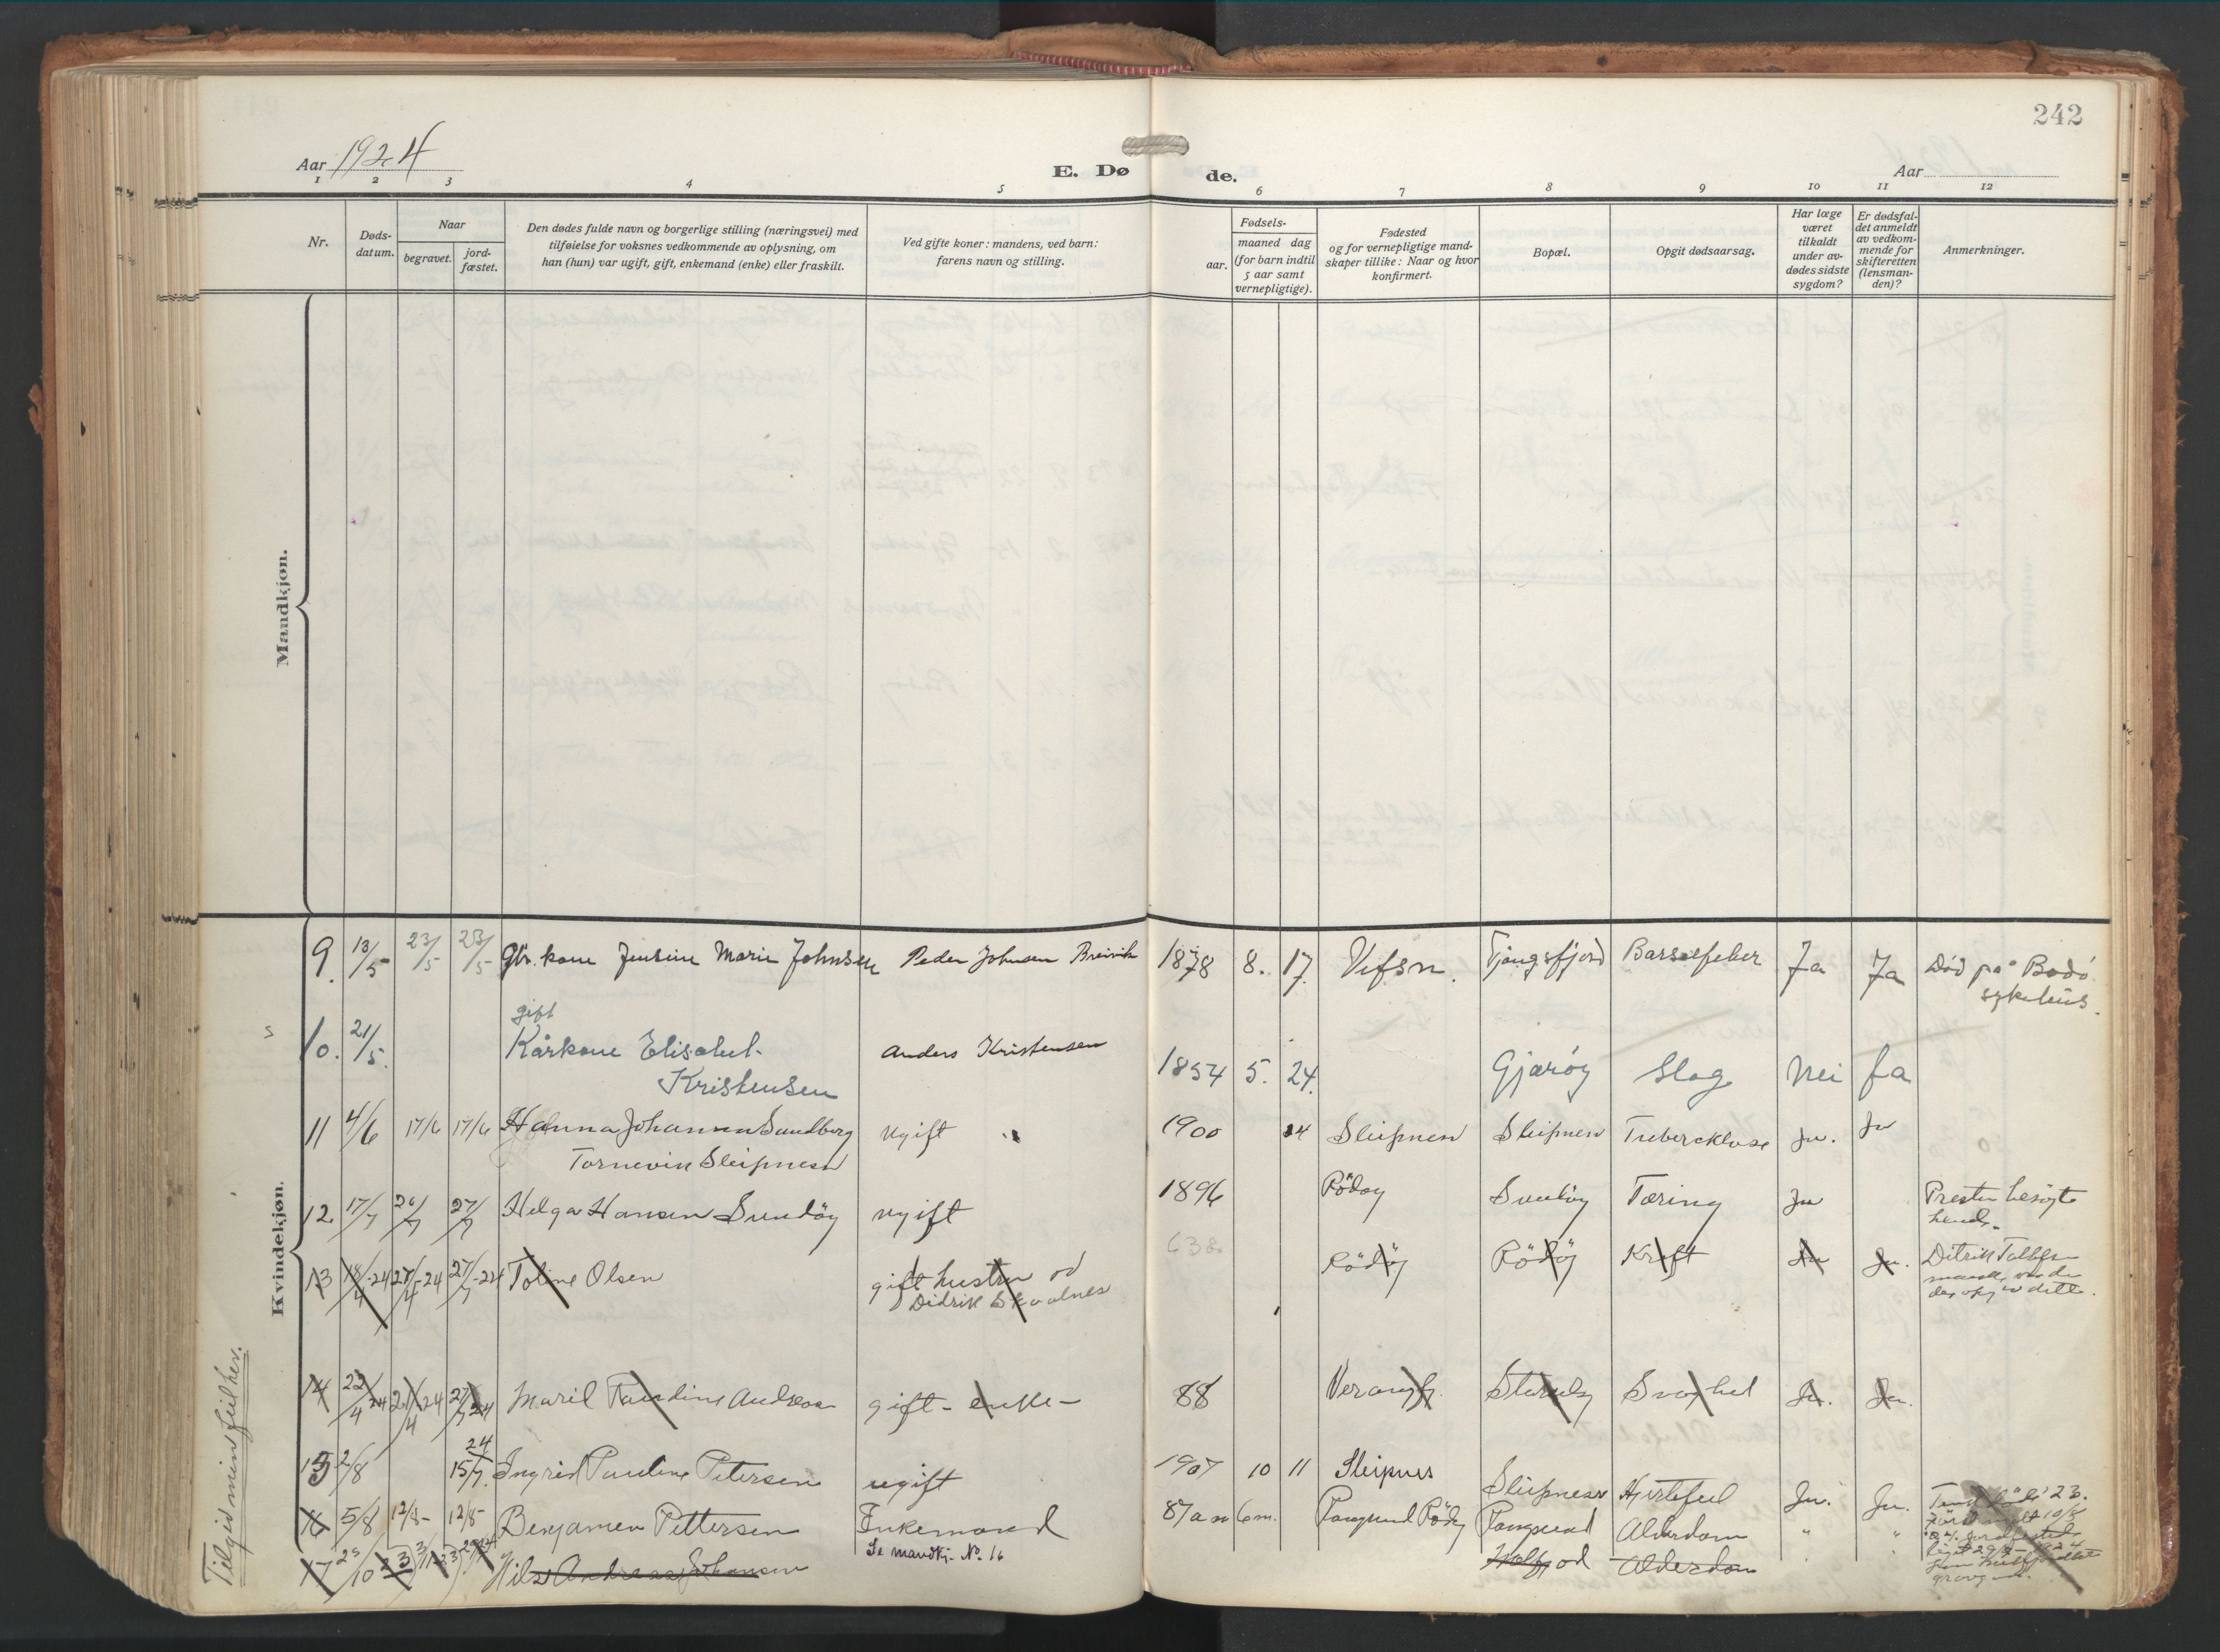 242
Aar 1924
E. Dø
de.
Aar
1 2 3 4 5 6 7 8 9 10 11 12
Nr.
Døds-
datum.
Naar
begravet.
jord-
fæstet.
Den dødes fulde navn og borgerlige stilling (næringsvei) med
tilføielse for voksnes vedkommende av oplysning, om
han (hun) var ugift, gift, enkemand (enke) eller fraskilt.
Ved gifte koner: mandens, ved barn:
farens navn og stilling.
Fødsels-
aar.
maaned dag
(for barn indtil
5 aar samt
vernepligtige).
Fødested
og for vernepligtige mand-
skaper tillike: Naar og hvor
konfirmert.
Bopæl.
Opgit dødsaarsag.
Har læge
været
tilkaldt
under av-
dødes sidste
sygdom?
Er dødsfal-
det anmeldt
av vedkom-
mende for
skifteretten
(lensman-
den)?
Anmerkninger.
Mandkjøn.
Kvindekjøn.
9. 13/5 23/5 23/5 Gbr. kone Jensine Marie Johnsen Peder Johnsen Breivik 1878 8. 17. Vefsn. Tjongsfjord Barselfeber Ja Ja Død på Bodø
sykehus.
gift
10. 21/5. Kårkone Elisabet Anders Kristensen 1854 5. 24. Gjærøy Slag Nei Ja
Kristensen
11 4/6 17/6 17/6 Hanna Johansen Sundberg ugift " 1900 24 Sleipnes Sleipnes Tuberckluse Ja. Ja
Tornevik Sleipnes
12. 17/7 26/7 27/7 Helga Hansen Sundöy ugift 1896 Rödøy Sundöy Tæring Ja Presten besøgte
hende.
13 18/4-24 27/4-24 27/7-24 Toline Olsen gift hustru od Rödöy Rödöy Kreft Ja Ja. Ditrik
Didrik
14 22/4 24 24 27/7 24 Maril Andrea gift - enke - 88 Ja. Ja.
24
15 2/8 15/7. Ingrid Pauline Petersen ugift 1907 10 11 Sleipnes Sleipnes Hjertefeil Ja. Ja.
16 5/8 12/8- 12/8- Benjamen Pettersen Enkemand 87 aar 6m. Rödöy Alderdom " "
Se mandkj. No. 16
17 Nils Andreas Johansen Alderdom
Tilgid min feil her.